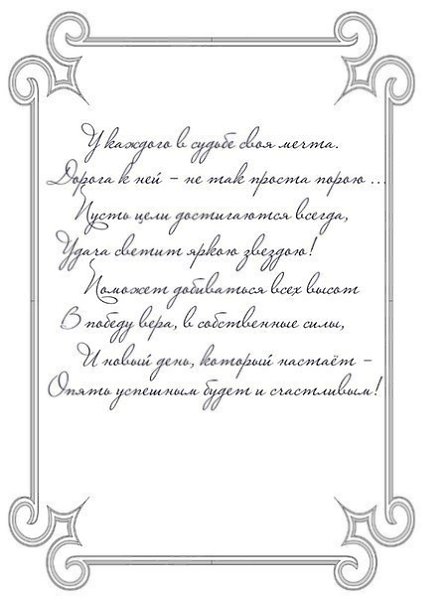 У каждого в судьбе своя мечта.
Дорога к ней – не так проста порою ...
Пусть цели достигаются всегда,
Удача светит яркою звездою!
Поможет добиваться всех высот
В победу вера, в собственные силы,
И новый день, который настаёт –
Опять успешным будет и счастливым!